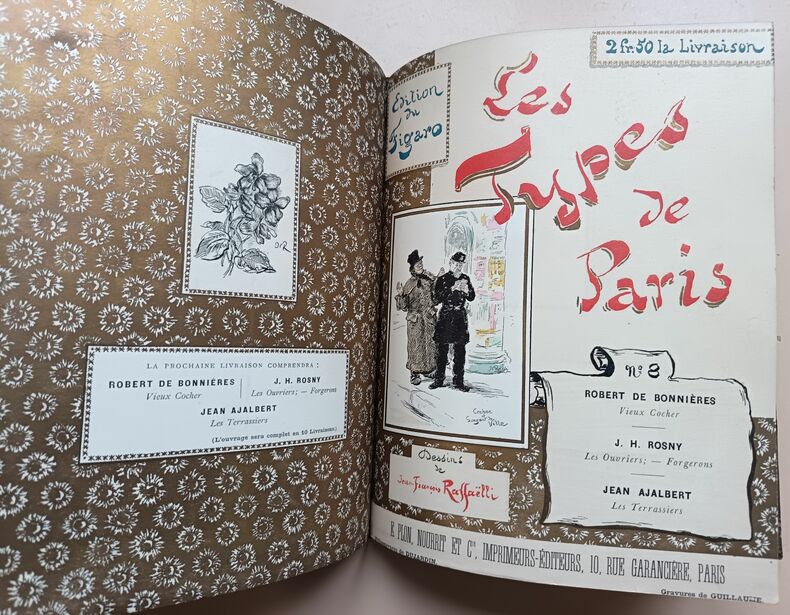 JFR
LA PROCHAINE LIVRAISON COMPRENDRA :
ROBERT DE BONNIÈRES
Vieux Cocher
J. H. ROSNY
Les Ouvriers; — Forgerons
JEAN AJALBERT
Les Terrassiers
(L'ouvrage sera complet en 10 Livraisons.)
2 fr. 50 la Livraison
Édition
du
Figaro
Les
Types
de
Paris
Cocher
et
Sergent de Ville
Dessins
de
Jean-François Raffaëlli
N° 8
ROBERT DE BONNIÈRES
Vieux Cocher
J. H. ROSNY
Les Ouvriers; — Forgerons
JEAN AJALBERT
Les Terrassiers
E PLON, NOURRIT ET Cie, IMPRIMEURS-ÉDITEURS, 10, RUE GARANCIÈRE, PARIS
de DUJARDIN.
Gravures de GUILLAUME.